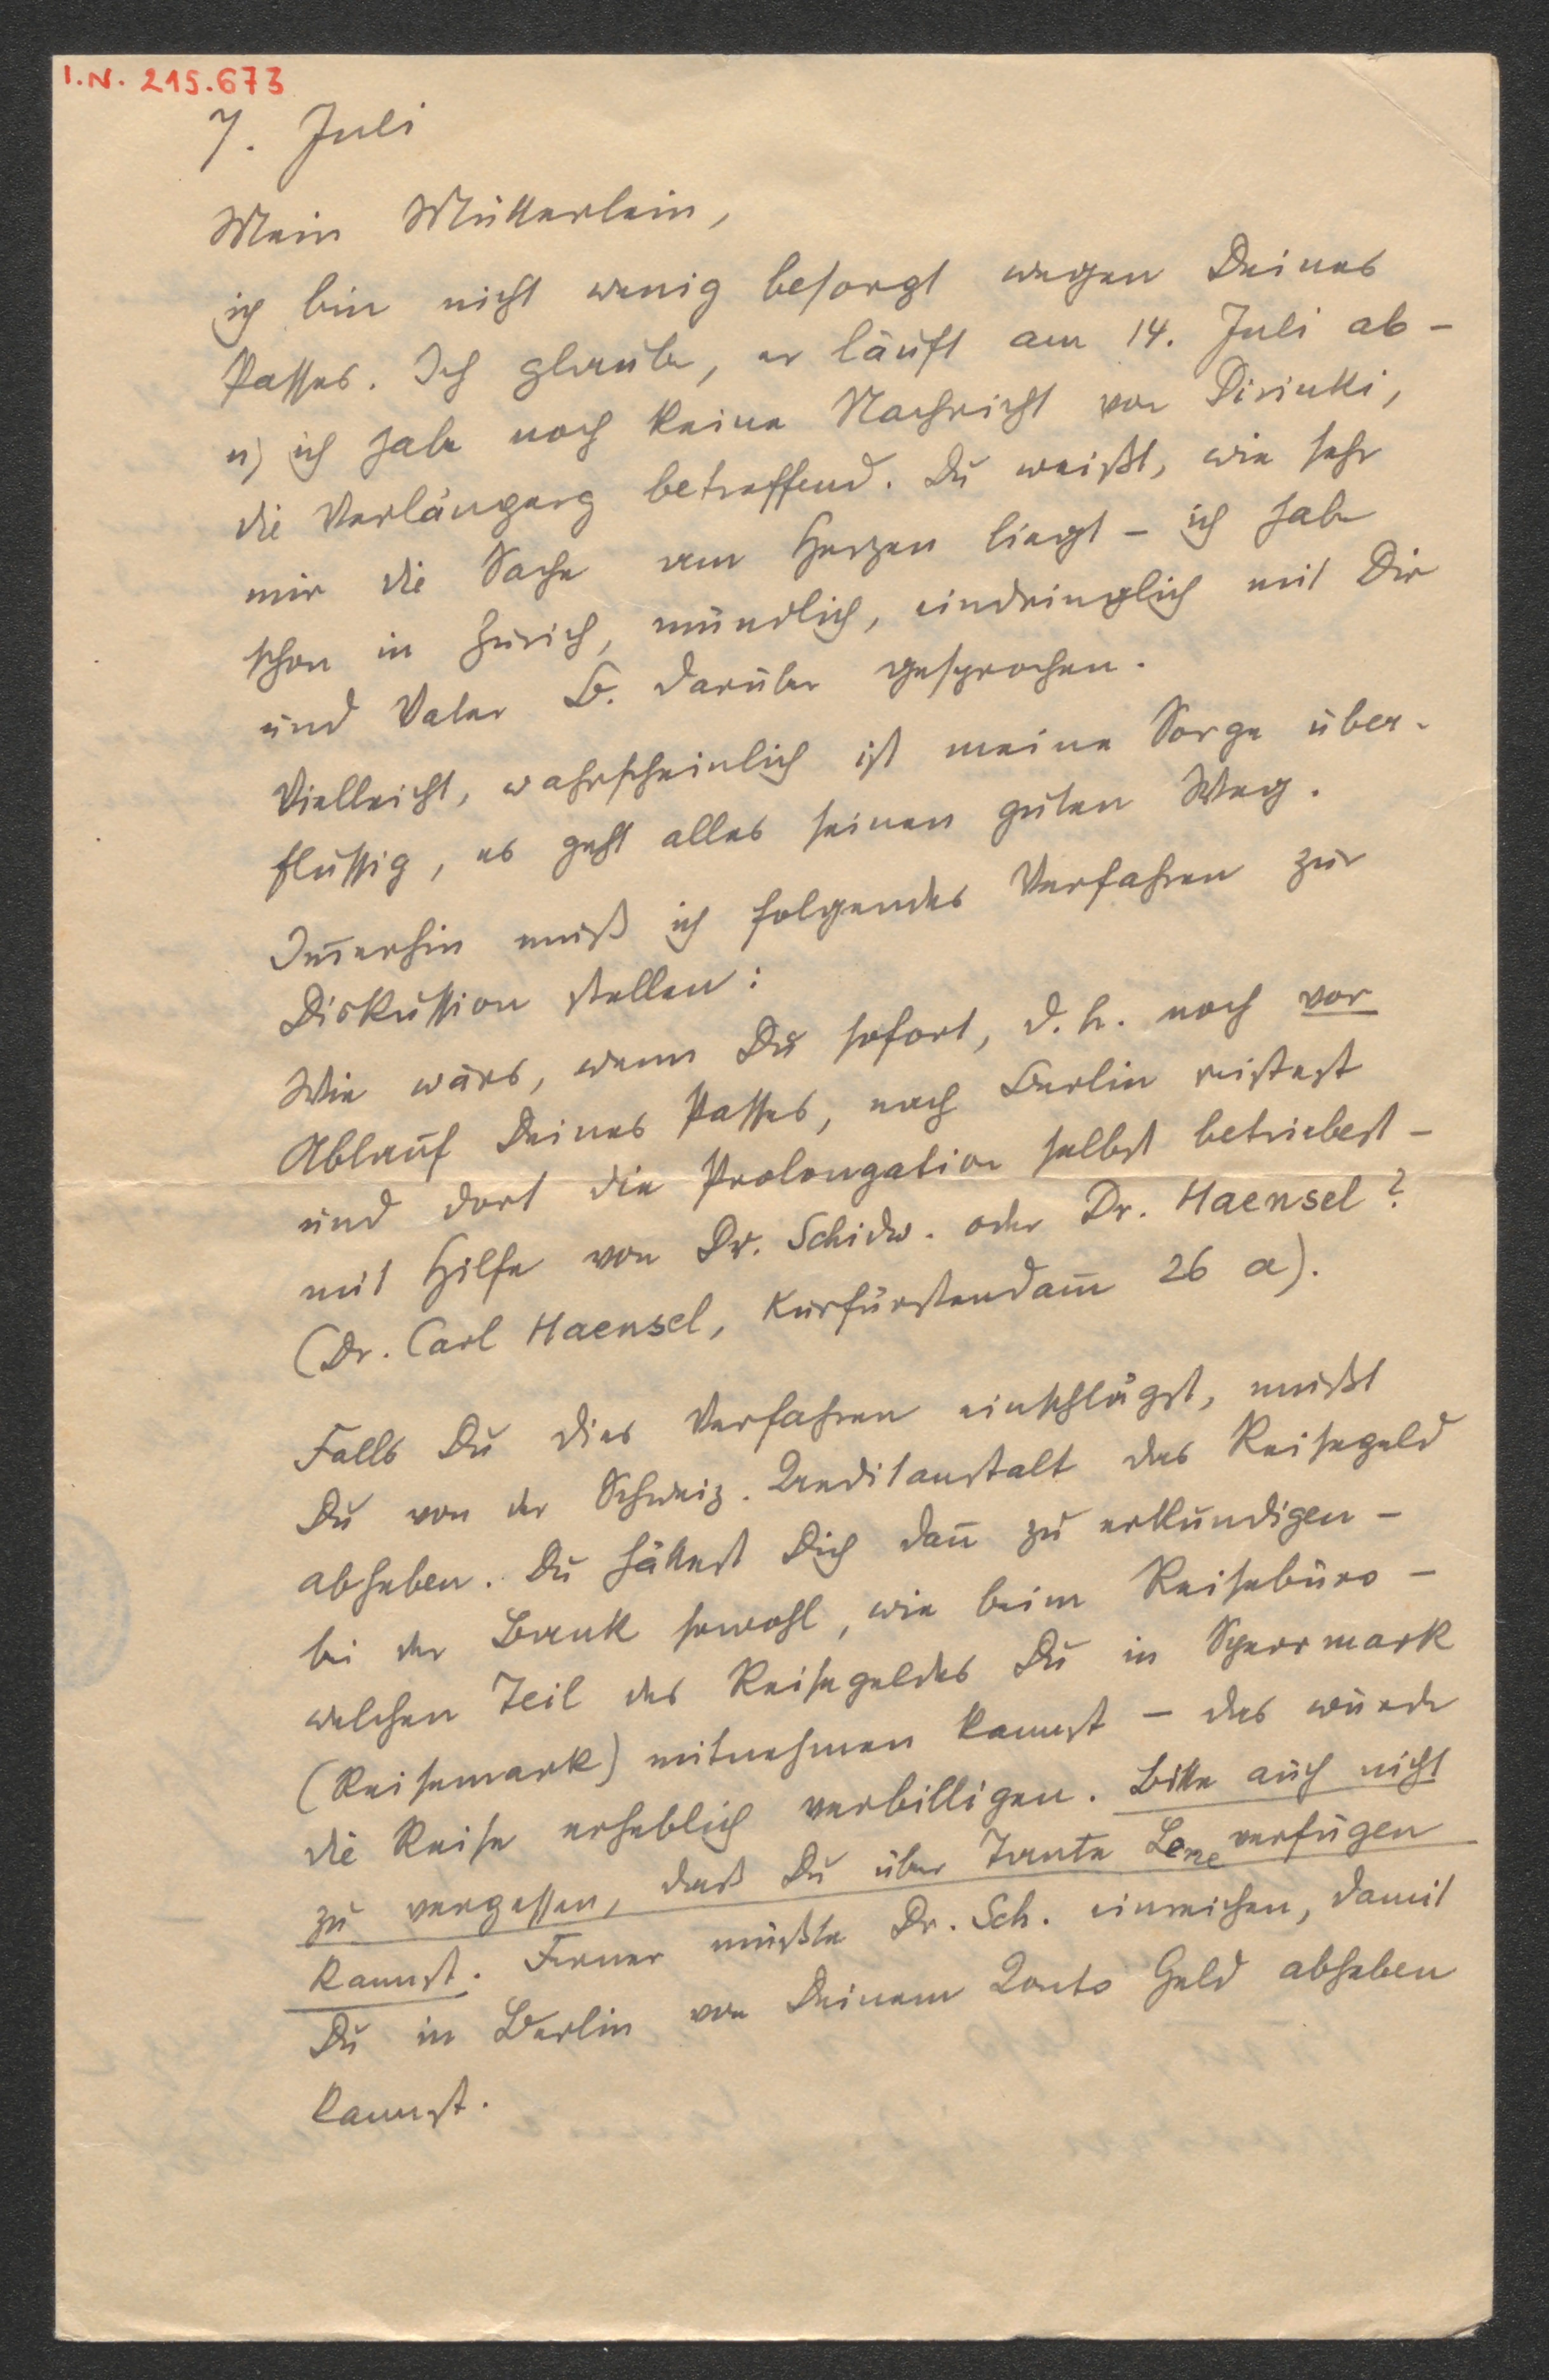 I.N. 215.673
7. Juli
Mein Mütterlein,
ich bin nicht wenig besorgt wegen Deines
Passes. Ich glaube, er läuft am 14. Juli ab –
u) ich habe noch keine Nachricht von
die Verlängerg betreffend. Du weißt, wie sehr
mir die Sache am Herzen liegt – ich habe
schon in Zürich, mündlich, eindringlich mit Dir
und Vater B. darüber gesprochen.
Vielleicht, wahrscheinlich ist meine Sorge über-
flüssig, es geht alles seinen guten Weg.
Im̄erhin muß ich folgendes Verfahren zur
Diskussion stellen:
Wie wärs, wenn Du sofort, d.h. noch vor
Ablauf Deines Passes, nach Berlin reistest
und dort die Prolongation selbst betriebest –
mit Hilfe von Dr. Schidw. oder Dr. Haensel?
(Dr. Carl Haensel, Kurfürstendam̄ 26 a).
Falls Du dies Verfahren einschlägst, mußt
Du von der Schweiz. Creditanstalt das Reisegeld
abheben. Du hättest Dich dan̄ zu erkundigen –
bei der Bank sowohl, wie beim Reisebüro –
welchen Teil des Reisegeldes Du in Sperrmark
(Reisemark) mitnehmen kannst – das würde
die Reise erheblich verbilligen. Bitte auch nicht
zu vergessen, daß Du über Tante Lene verfügen
kannst. Ferner müßte Dr. Sch. einreichen, damit
Du in Berlin von Deinem Conto Geld abheben
kannst.